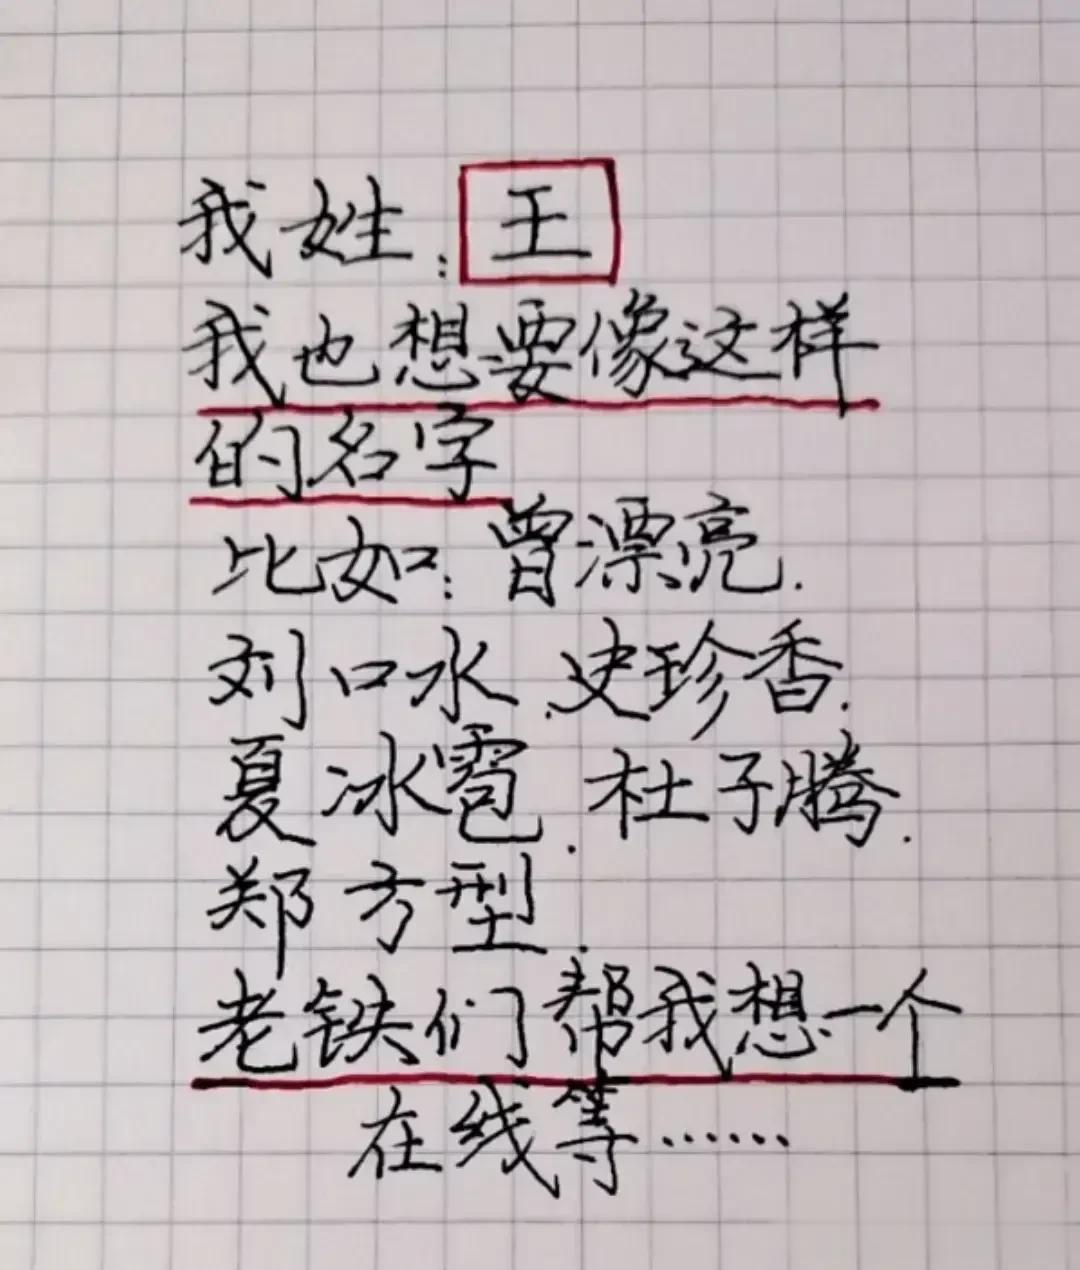 我姓:王
我也想要像这样
的名字
比如:曾漂亮.
刘口水.史珍香.
夏冰雹.杜子腾.
郑方型.
老铁们帮我想一个
在线等……